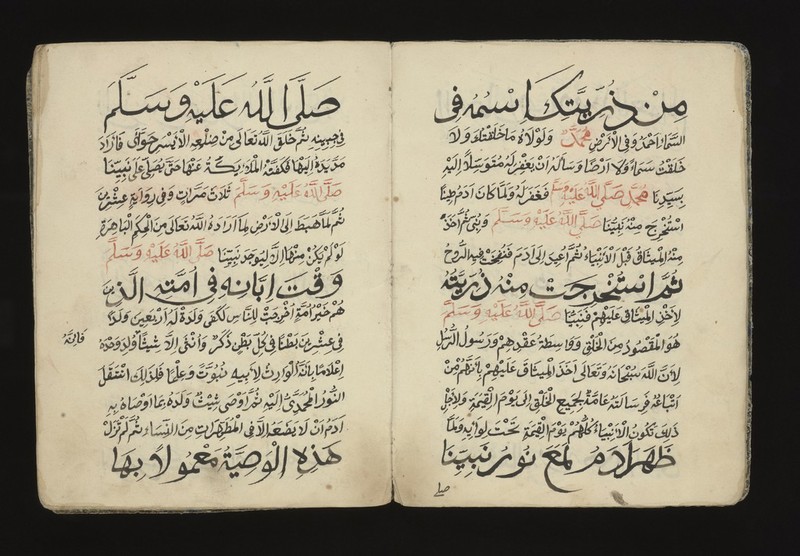 مِنْ ذُرِّيَّتِكَ اِسْمُهُ فِى
السَّمَاءِ اَحْمَدُ وَفِى الْاَرْضِ مُحَمَّدٌ وَلَوْلَاهُ مَا خَلَقْتُكَ وَلَا
خَلَقْتُ سَمَاءً وَلَا اَرْضًا وَسَاَلَهُ اَنْ يَغْفِرَ لَهُ مُتَوَسِّلًا اِلَيْهِ
بِسَيِّدِنَا مُحَمَّدٍ صَلَّى اللّٰهُ عَلَيْهِ وَسَلَّمَ فَغَفَرَ لَهُ وَلَمَّا كَانَ اٰدَمُ طِينًا
اسْتُخْرِجَ مِنْهُ نَبِيُّنَا صَلَّى اللّٰهُ عَلَيْهِ وَسَلَّمَ وَنُبِّئَ ثُمَّ اُخِذَ
مِنْهُ الْمِيثَاقُ قَبْلَ الْاَنْبِيَاءِ ثُمَّ اُعِيدَ اِلَى اٰدَمَ فَنُفِخَتْ فِيهِ الرُّوحُ
ثُمَّ اسْتُخْرِجَتْ مِنْهُ ذُرِّيَّتُهُ
لِاَخْذِ الْمِيثَاقِ عَلَيْهِمْ فَنَبِيُّنَا صَلَّى اللّٰهُ عَلَيْهِ وَسَلَّمَ
هُوَ الْمَقْصُودُ مِنَ الْخَلْقِ وَوَاسِطَةُ عِقْدِهِمْ وَرَسُولُ الرُّسُلِ
لِاَنَّ اللّٰهَ سُبْحَانَهُ وَتَعَالٰى اَخَذَ الْمِيثَاقَ عَلَيْهِمْ بِاَنَّهُمْ مِنْ
اَتْبَاعِهِ فَرِسَالَتُهُ عَامَّةٌ لِجَمِيعِ الْخَلْقِ اِلٰى يَوْمِ الْقِيٰمَةِ وَلِاَجْلِ
ذٰلِكَ تَكُونُ الْاَنْبِيَاءُ كُلُّهُمْ يَوْمَ الْقِيٰمَةِ تَحْتَ لِوَائِهِ وَلَمَّا
ظَهَرَ اٰدَمُ لَمَعَ نُورُ نَبِيِّنَا
صلى
صَلَّى اللّٰهُ عَلَيْهِ وَسَلَّمَ
فِى جَبِينِهِ ثُمَّ خَلَقَ اللّٰهُ تَعَالٰى مِنْ ضِلْعِهِ الْاَيْسَرِ حَوَّاءَ فَاَرَادَ
مَدَّ يَدِهِ اِلَيْهَا فَكَفَّتْهُ الْمَلَائِكَةُ عَنْهَا حَتّٰى يُصَلِّىَ عَلٰى نَبِيِّنَا
صَلَّى اللّٰهُ عَلَيْهِ وَسَلَّمَ ثَلَاثَ مَرَّاتٍ وَفِى رِوَايَةٍ عِشْرِينَ
ثُمَّ لَمَّا هَبَطَ اِلَى الْاَرْضِ لِمَا اَرَادَهُ اللّٰهُ تَعَالٰى مِنَ الْحِكَمِ الْبَاهِرَةِ
لَوْ لَمْ يَكُنْ مِنْهَا اِلَّا لِيُوجَدَ نَبِيُّنَا صَلَّى اللّٰهُ عَلَيْهِ وَسَلَّمَ
وَقْتَ اِبَّانِهِ فِى اُمَّتِهِ الَّذِينَ
هُمْ خَيْرُ اُمَّةٍ اُخْرِجَتْ لِلنَّاسِ لَكَفٰى وَلَدَتْ لَهُ اَرْبَعِينَ وَلَدًا
فِى عِشْرِينَ بَطْنًا فِى كُلِّ بَطْنٍ ذَكَرٌ وَاُنْثٰى اِلَّا شِيثًا وُلِدَ وَحْدَهُ
فَاِنَّهُ
اِعْلَامًا بِاَنَّهُ الْوَارِثُ لِاَبِيهِ نُبُوَّتً وَعِلْمًا فَلِذٰلِكَ انْتَقَلَ
النُّورُ الْمُحَمَّدِىُّ اِلَيْهِ ثُمَّ اَوْصٰى شِيثُ وَلَدَهُ بِمَا اَوْصَاهُ بِهِ
اٰدَمُ اَنْ لَا يَضَعَهُ اِلَّا فِى الْمُطَهَّرَاتِ مِنَ النِّسَاءِ ثُمَّ لَمْ تَزَلْ
هٰذِهِ الْوَصِيَّةُ مَعْمُولًا بِهَا